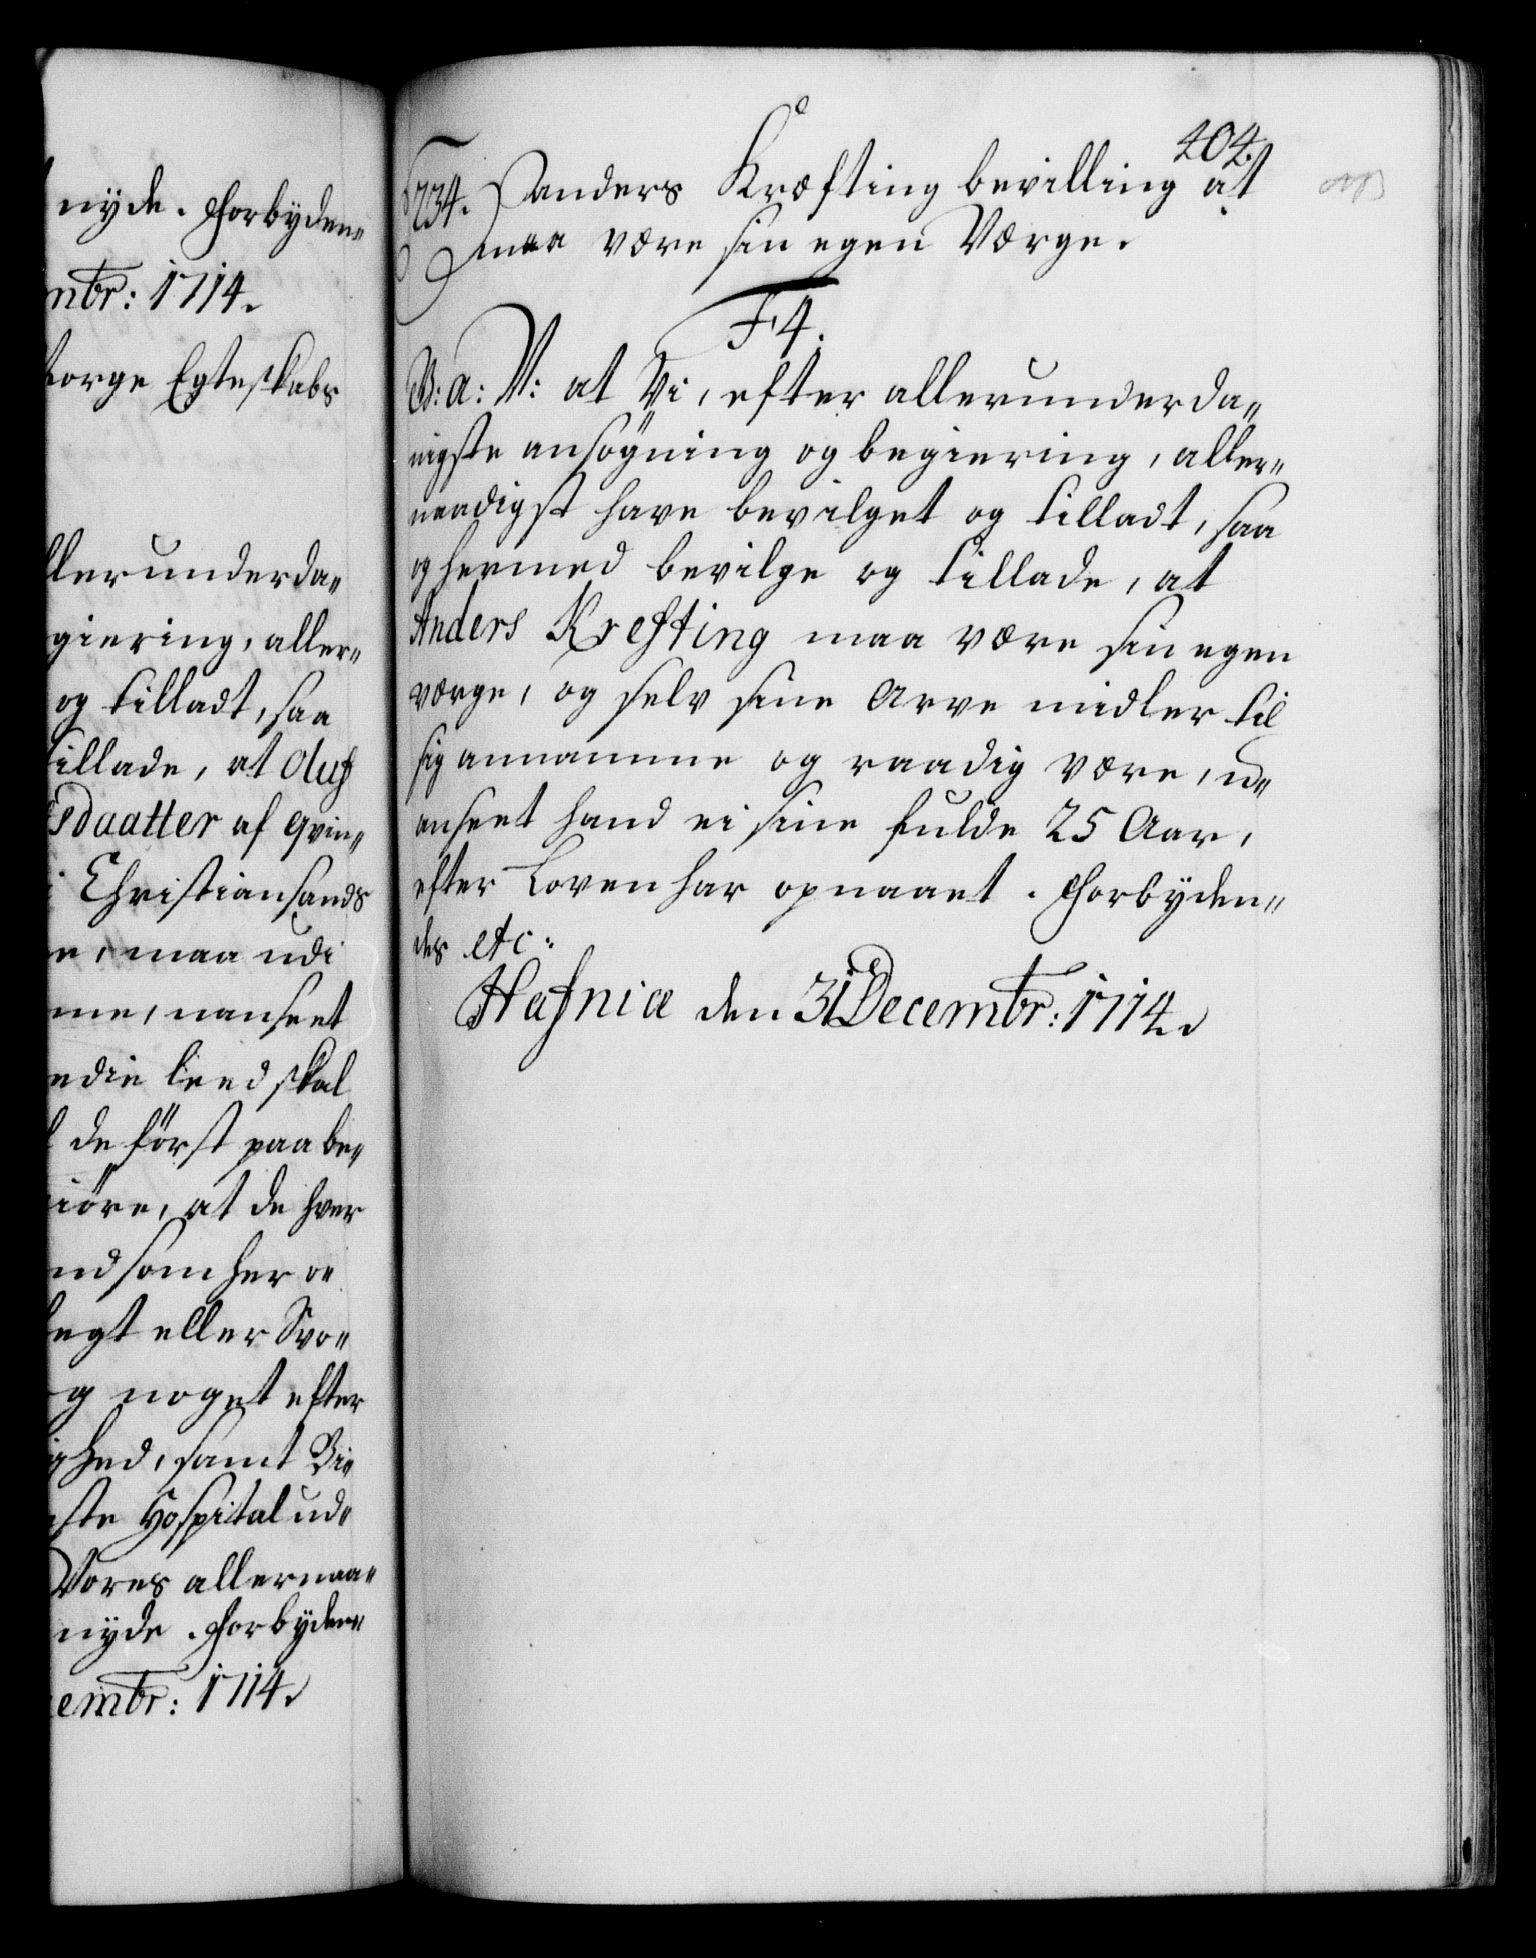 nyde. Forbyden„
mbr: 1714.
borge Egteskabs
llerunderda„
giering, aller„
og tilladt, saa
tillade, at Oluf
sdaatter af Qvin„
i Christiansands
e, maa udi
me, uanseet
edie leed skal
de först paabe„
giöre, at de hver
nd som her o„
legt eller Svo„
g noget efter
ighed, samt Bi„
ste Hospital ud„
Vores allernaa„
nyde. Forbyden„
embr: 1714.
404.
234. Anders Kræfting bevilling at
maa være sin egen Værge.
F4.
G: A: V: at Vi, efter allerunderda„
nigste ansögning og begiering, aller„
naadigst have bevilget og tilladt, saa
og hermed bevilge og tillade, at
Anders Krefting maa være sin egen
værge, og selv sine Arve midler til
sig annamme og raadig være, u„
anseet hand ei sine fulde 25 Aar,
efter Loven har opnaaet. Forbyden„
des etc:
Hafniæ den 31 Decembr: 1714.